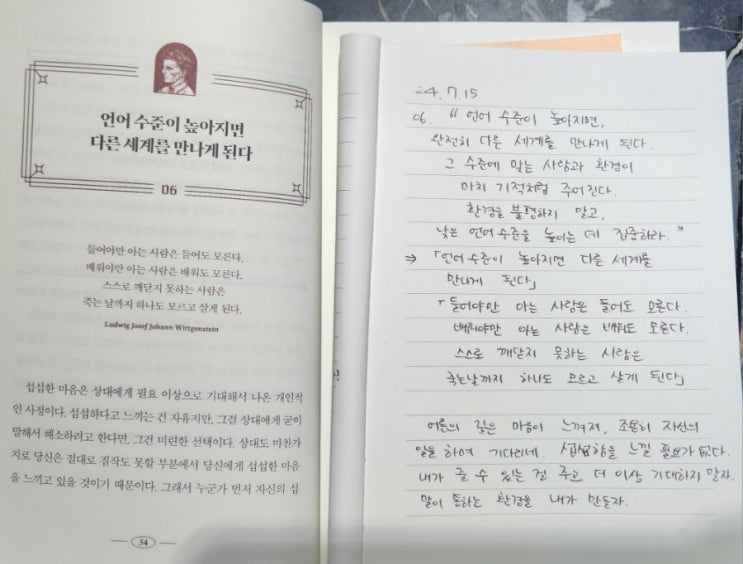 언어 수준이 높아지면
다른 세계를 만나게 된다
06
들어야만 아는 사람은 들어도 모른다.
배워야만 아는 사람은 배워도 모른다.
스스로 깨닫지 못하는 사람은
죽는 날까지 하나도 모르고 살게 된다.
Ludwig Josef Johann Wittgenstein
섭섭한 마음은 상대에게 필요 이상으로 기대해서 나온 개인적
인 사정이다. 섭섭하다고 느끼는 건 자유지만, 그걸 상대에게 굳이
말해서 해소하려고 한다면, 그건 미련한 선택이다. 상대도 마찬가
지로 당신은 절대로 짐작도 못할 부분에서 당신에게 섭섭한 마음
을 느끼고 있을 것이기 때문이다. 그래서 누군가 먼저 자신의 섭
34
24. 7. 15
06. "언어 수준이 높아지면,
완전히 다른 세계를 만나게 된다.
그 수준에 맞는 사람과 환경이
마치 기적처럼 주어진다.
환경을 불평하지 말고,
낮은 언어 수준을 높이는 데 집중하라."
⇒ 「언어 수준이 높아지면 다른 세계를
만나게 된다」
「들어야만 아는 사람은 들어도 모른다.
배워야만 아는 사람은 배워도 모른다.
스스로 깨닫지 못하는 사람은
죽는날까지 하나도 모르고 살게 된다」
어른의 깊은 마음이 느껴져, 조용히 자신의
일을 하며 기다리네. 섭섭함을 느낄 필요가 없다.
내가 줄 수 있는 걸 주고 더 이상 기대하지 말자.
말이 통하는 환경을 내가 만들자.